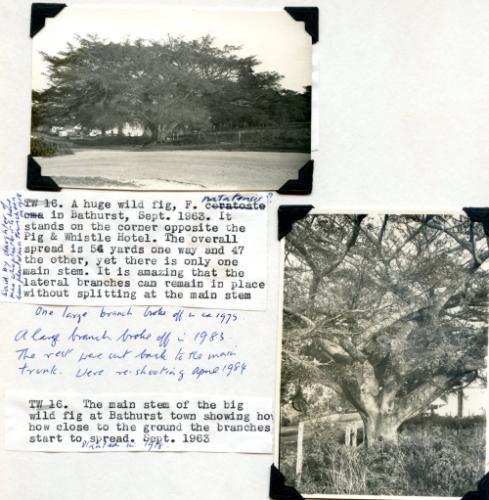 natalensis
TW 16. A huge wild fig, F. ceratoste
oma in Bathurst, Sept. 1963. It
stands on the corner opposite the
Pig & Whistle Hotel. The overall
spread is 54 yards one way and 47
the other, yet there is only one
main stem. It is amazing that the
lateral branches can remain in place
without splitting at the main stem
One large branch broke off in ca 1975.
A large branch broke off in 1983
The rest were cut back to the main
trunk. Were re-shooting April 1984
TW 16. The main stem of the big
wild fig at Bathurst town showing how
how close to the ground the branches
start to spread. Sept. 1963
Planted in